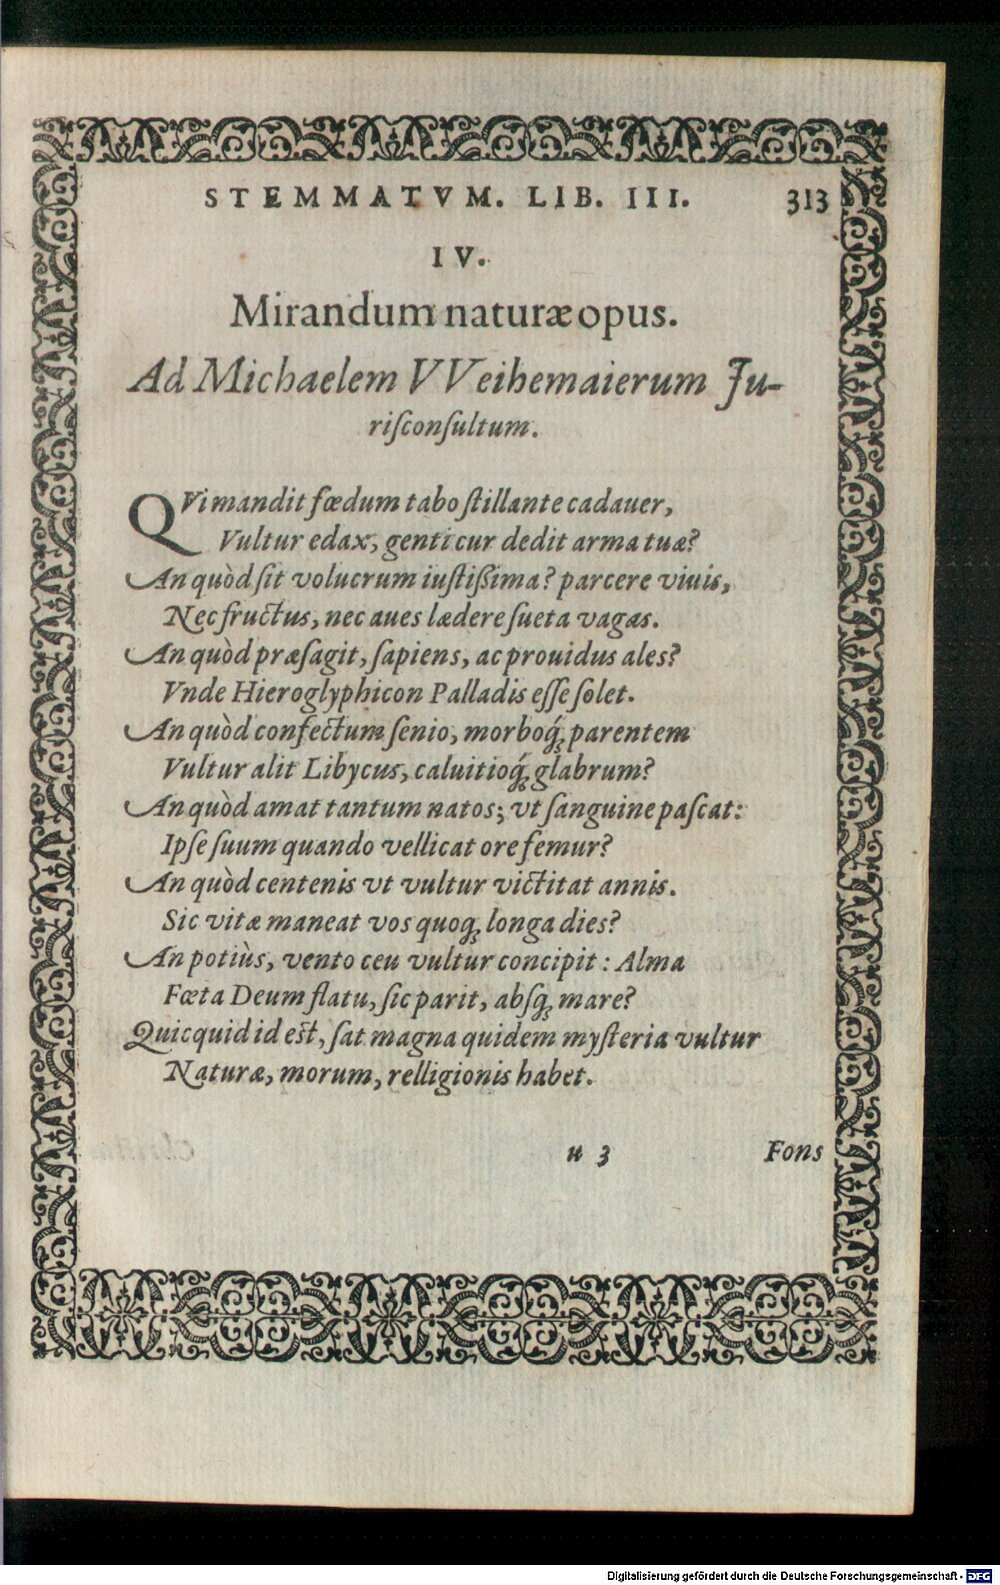 STEMMATVM. LIB. III. 313
IV.
Mirandum naturæ opus.
Ad Michaelem VVeihemaierum Ju-
riſconſultum.
QVi mandit fœdum tabo ſtillante cadauer,
Vultur edax, genti cur dedit arma tuæ?
An quòd ſit volucrum iuſtiſsima? parcere viuis,
Nec fructus, nec aues lædere ſueta vagas.
An quòd præſagit, ſapiens, ac prouidus ales?
Vnde Hieroglyphicon Palladis eſſe ſolet.
An quòd confectum ſenio, morboq́; parentem
Vultur alit Libycus, caluitioq́; glabrum?
An quòd amat tantum natos; vt ſanguine paſcat:
Ipſe ſuum quando vellicat ore femur?
An quòd centenis vt vultur victitat annis.
Sic vitæ maneat vos quoq; longa dies?
An potiùs, vento ceu vultur concipit: Alma
Fœta Deum flatu, ſic parit, abſq; mare?
Quicquid id eſt, ſat magna quidem myſteria vultur
Naturæ, morum, relligionis habet.
u 3 Fons
Digitalisierung gefördert durch die Deutsche Forschungsgemeinschaft - DFG